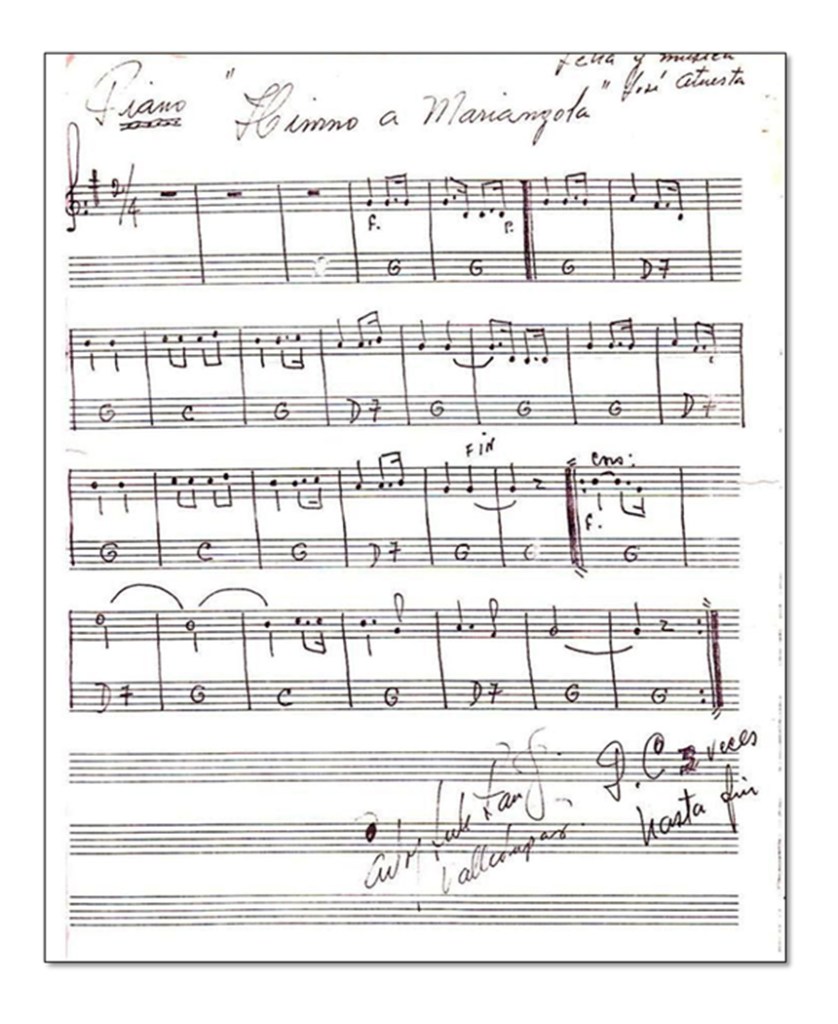 Letra y musica
Piano "Himno a Mariangola" José Atuesta
2/4
f. p.
G G G D7
G C G D7 G G G D7
FIN
coro:
f.
G C G D7 G G G
D7 G C G D7 G G
D.C 2 veces
hasta fin
Valledupar